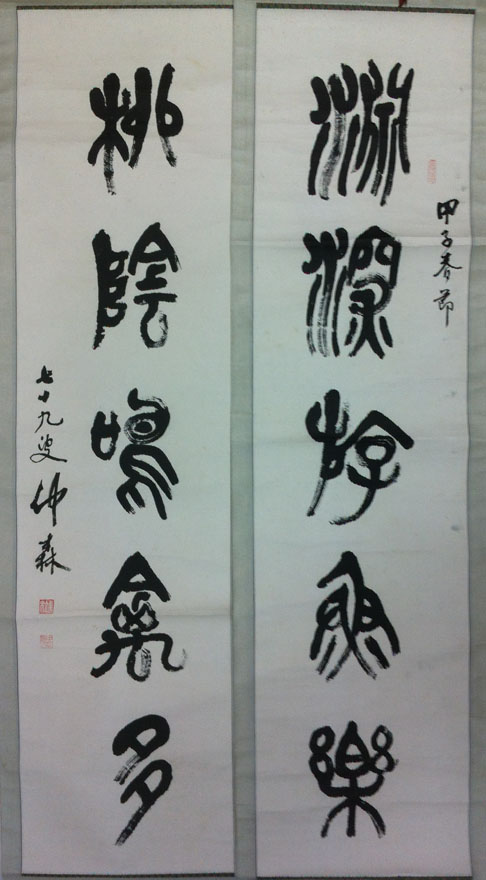 甲子春節
淵深斿魚樂
柳陰鳴禽多
七十九叟仲森